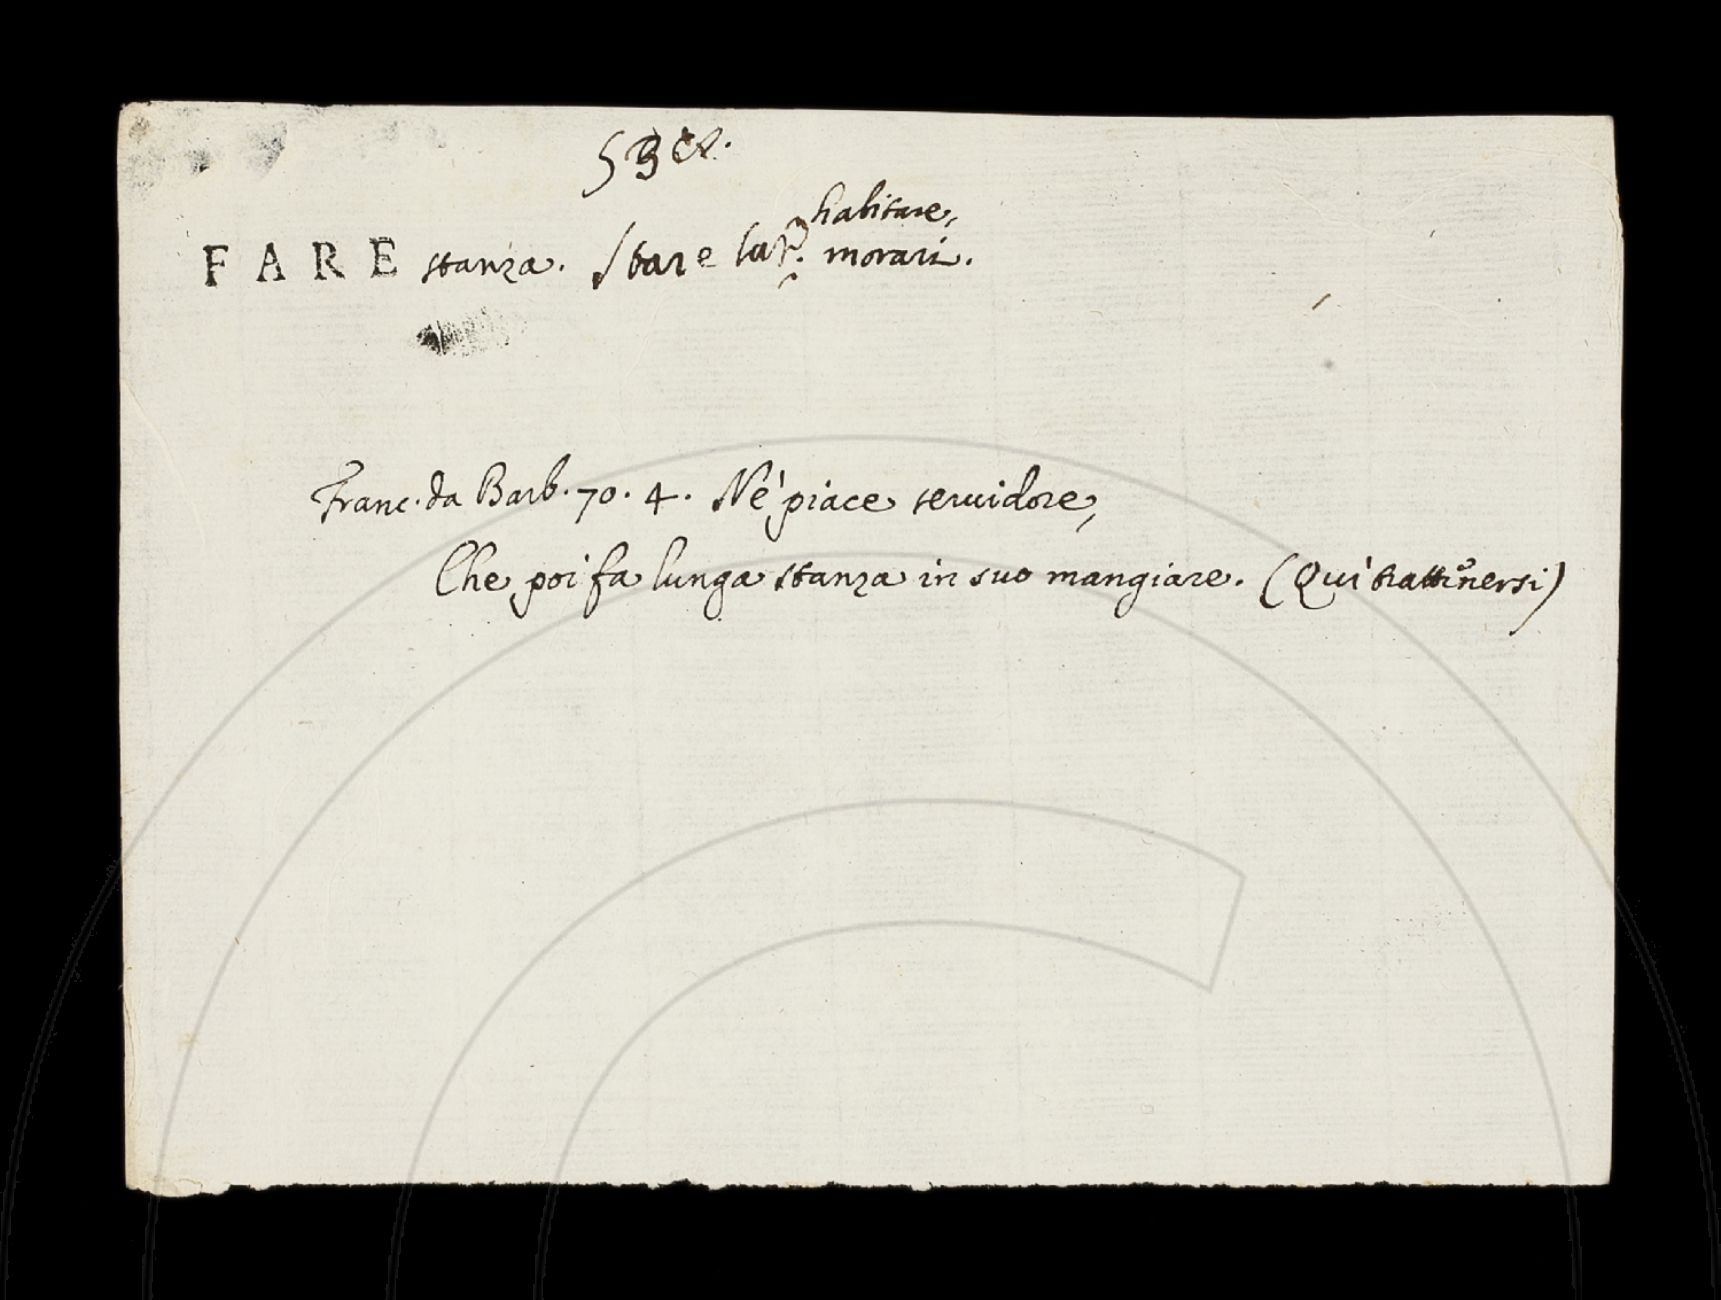 habitare,
FARE stanza. Stare lat. morari.
Franc. da Barb. 70. 4. Né piace seruidore,
Che poi fa lunga stanza in suo mangiare. (Quì trattenersi)